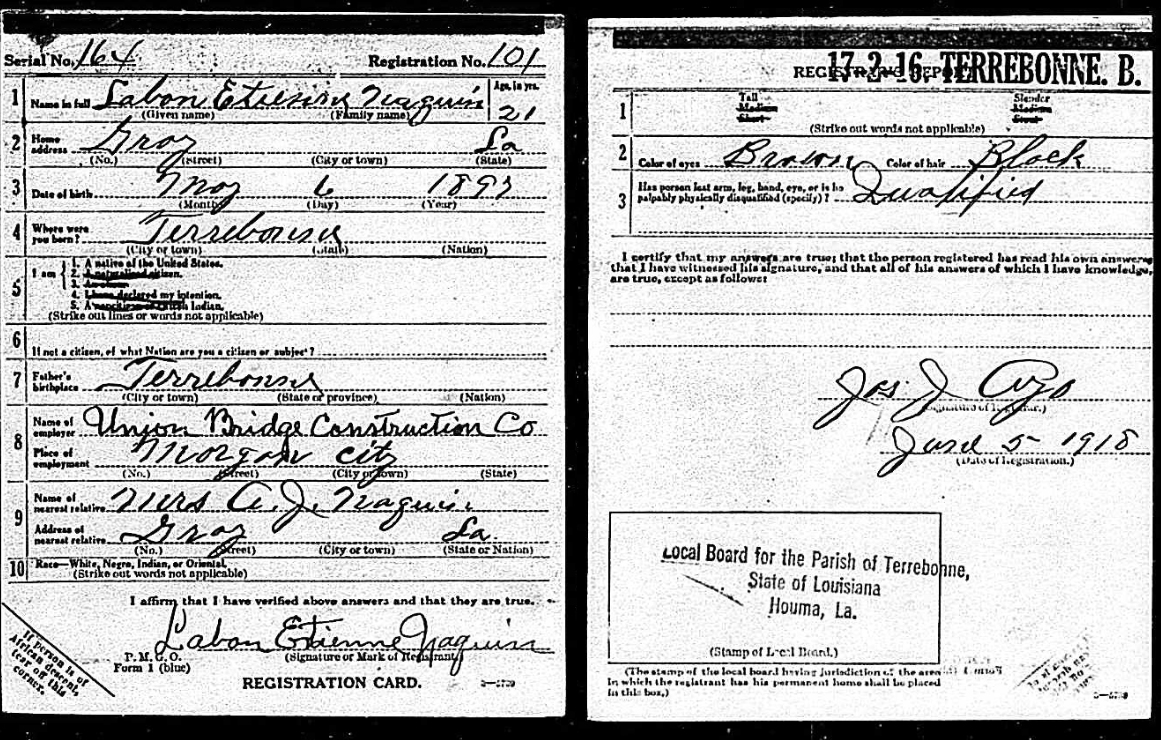 Serial No. 164 Registration No. 101
1 Name in full Labon Etienne Naquin Age, in yrs. 21
(Given name) (Family name)
2 Home address Gray La
(No.) (Street) (City or town) (State)
3 Date of birth May 6 1897
(Month) (Day) (Year)
4 Where were you born? Terrebonne
(City or town) (State) (Nation)
5 I am
1. A native of the United States.
2. A naturalized citizen.
3. An alien.
4. I have declared my intention.
5. A Indian.
(Strike out lines or words not applicable)
6 If not a citizen, of what Nation are you a citizen or subject?
7 Father's birthplace Terrebonne
(City or town) (State or province) (Nation)
8 Name of employer Union Bridge Construction Co
Place of employment Morgan City
(No.) (Street) (City or town) (State)
9 Name of nearest relative Mrs A. J. Naquin
Address of nearest relative Gray La.
(No.) (Street) (City or town) (State or Nation)
10 Race—White, Negro, Indian, or Oriental
(Strike out words not applicable)
I affirm that I have verified above answers and that they are true.
Labon Etienne Naquin
(Signature or Mark of Registrant)
P. M. G. O.
Form 1 (blue)
REGISTRATION CARD.
If person is of African descent, tear off this corner.
17-2-16. TERREBONNE. B.
REGISTRAR'S REPORT
1 Tall Slender
Medium Medium
Short Stout
(Strike out words not applicable)
2 Color of eyes Brown Color of hair Black
3 Has person lost arm, leg, hand, eye, or is he
palpably physically disqualified (specify)? Qualified
I certify that my answers are true; that the person registered has read his own answers,
that I have witnessed his signature, and that all of his answers of which I have knowledge
are true, except as follows:
Jos. J. Ayo
(Signature of Registrar.)
June 5 1918
(Date of Registration.)
Local Board for the Parish of Terrebonne,
State of Louisiana
Houma, La.
(Stamp of Local Board.)
(The stamp of the local board having jurisdiction of the area
in which the registrant has his permanent home shall be placed
in this box.)